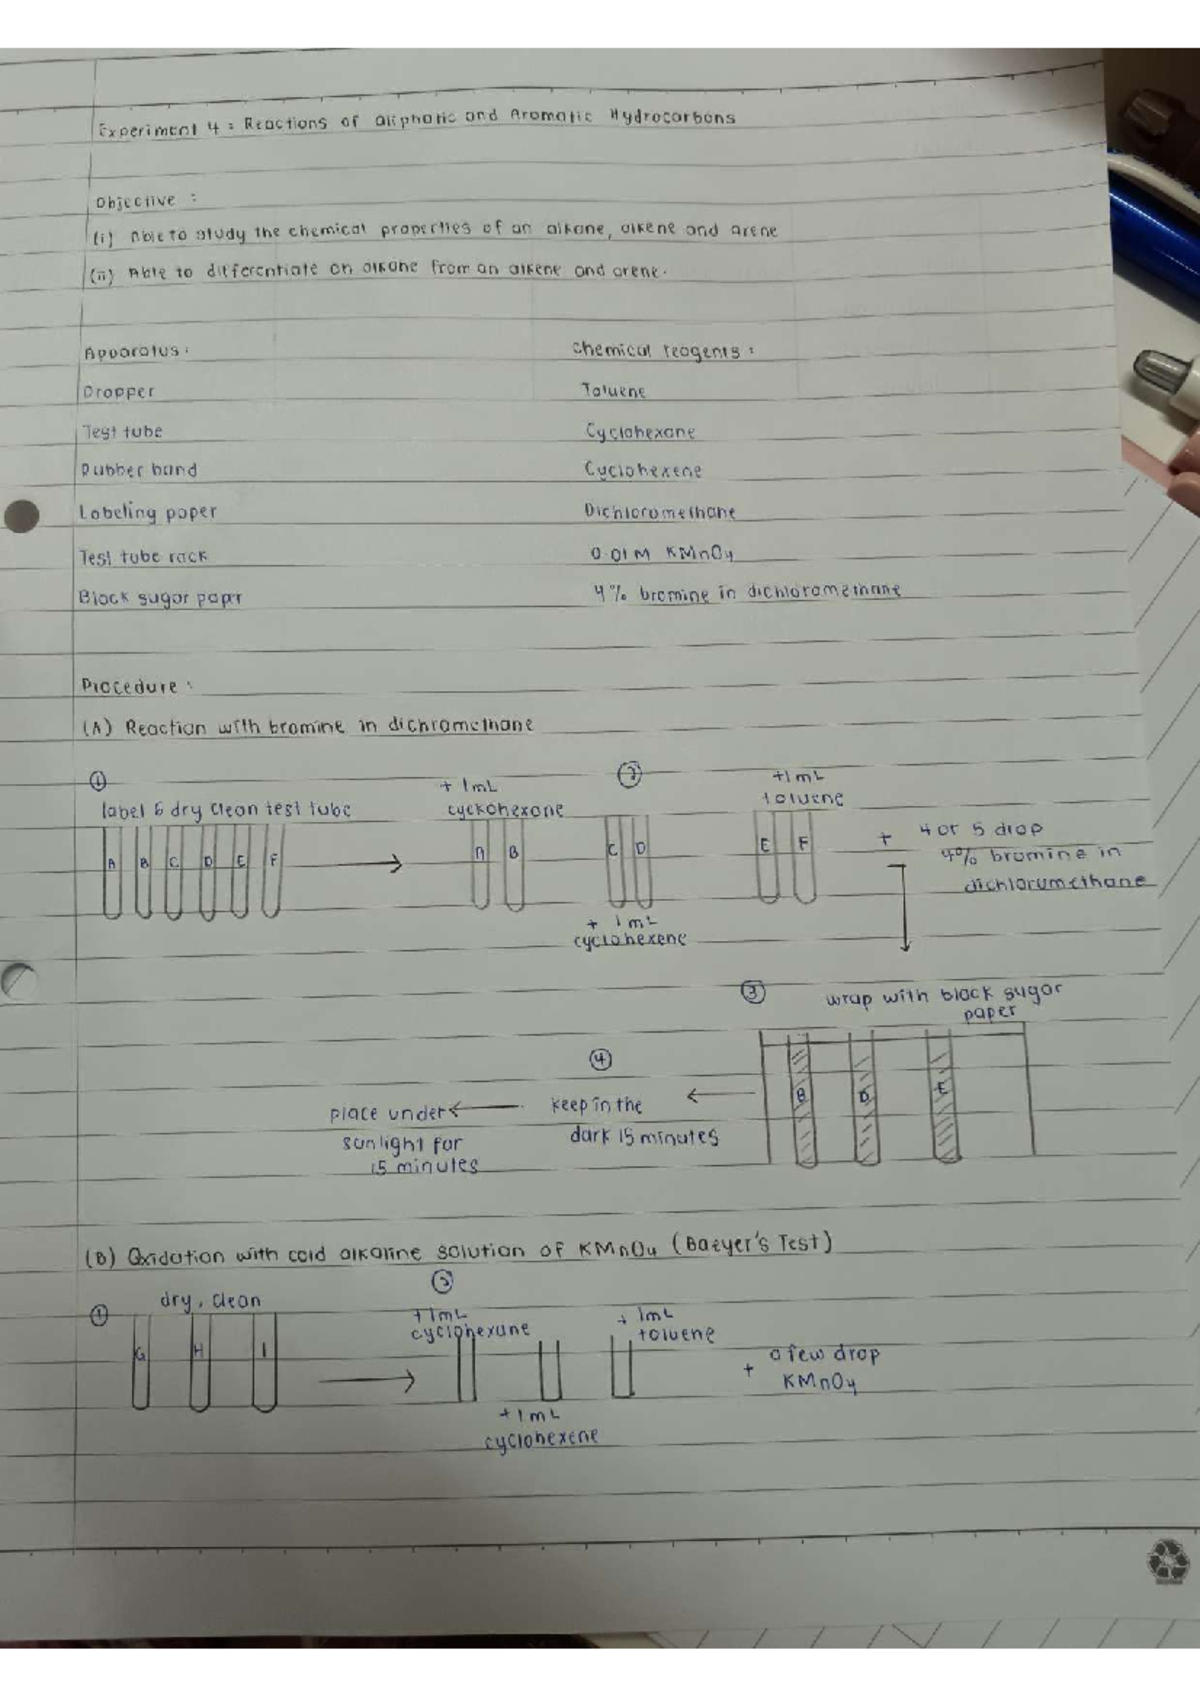 Experiment 4 : Reactions of aliphatic and Aromatic Hydrocarbons
Objective :
(i) Able to study the chemical properties of an alkane, alkene and arene
(ii) Able to differentiate an alkane from an alkene and arene.
Apparatus :
Chemical reagents :
Dropper
Toluene
Test tube
Cyclohexane
Rubber band
Cyclohexene
Labeling paper
Dichloromethane
Test tube rack
0.01M KMnO4
Black sugar paper
4% bromine in dichloromethane
Procedure :
(A) Reaction with bromine in dichromethane
①
label & dry clean test tube
A B C D E F
②
+ 1mL
cyckohexane
A B
C D
+ 1mL
cyclohexene
+1mL
toluene
E F
+
4 or 5 drop
4% bromine in
dichloromethane
③
wrap with black sugar
paper
B D F
④
keep in the
dark 15 minutes
place under
sunlight for
15 minutes
(B) Oxidation with cold alkaline solution of KMnO4 (Baeyer's Test)
①
dry, clean
G H I
②
+1mL
cyclohexane
+1mL
cyclohexene
+ 1mL
toluene
+
a few drop
KMnO4